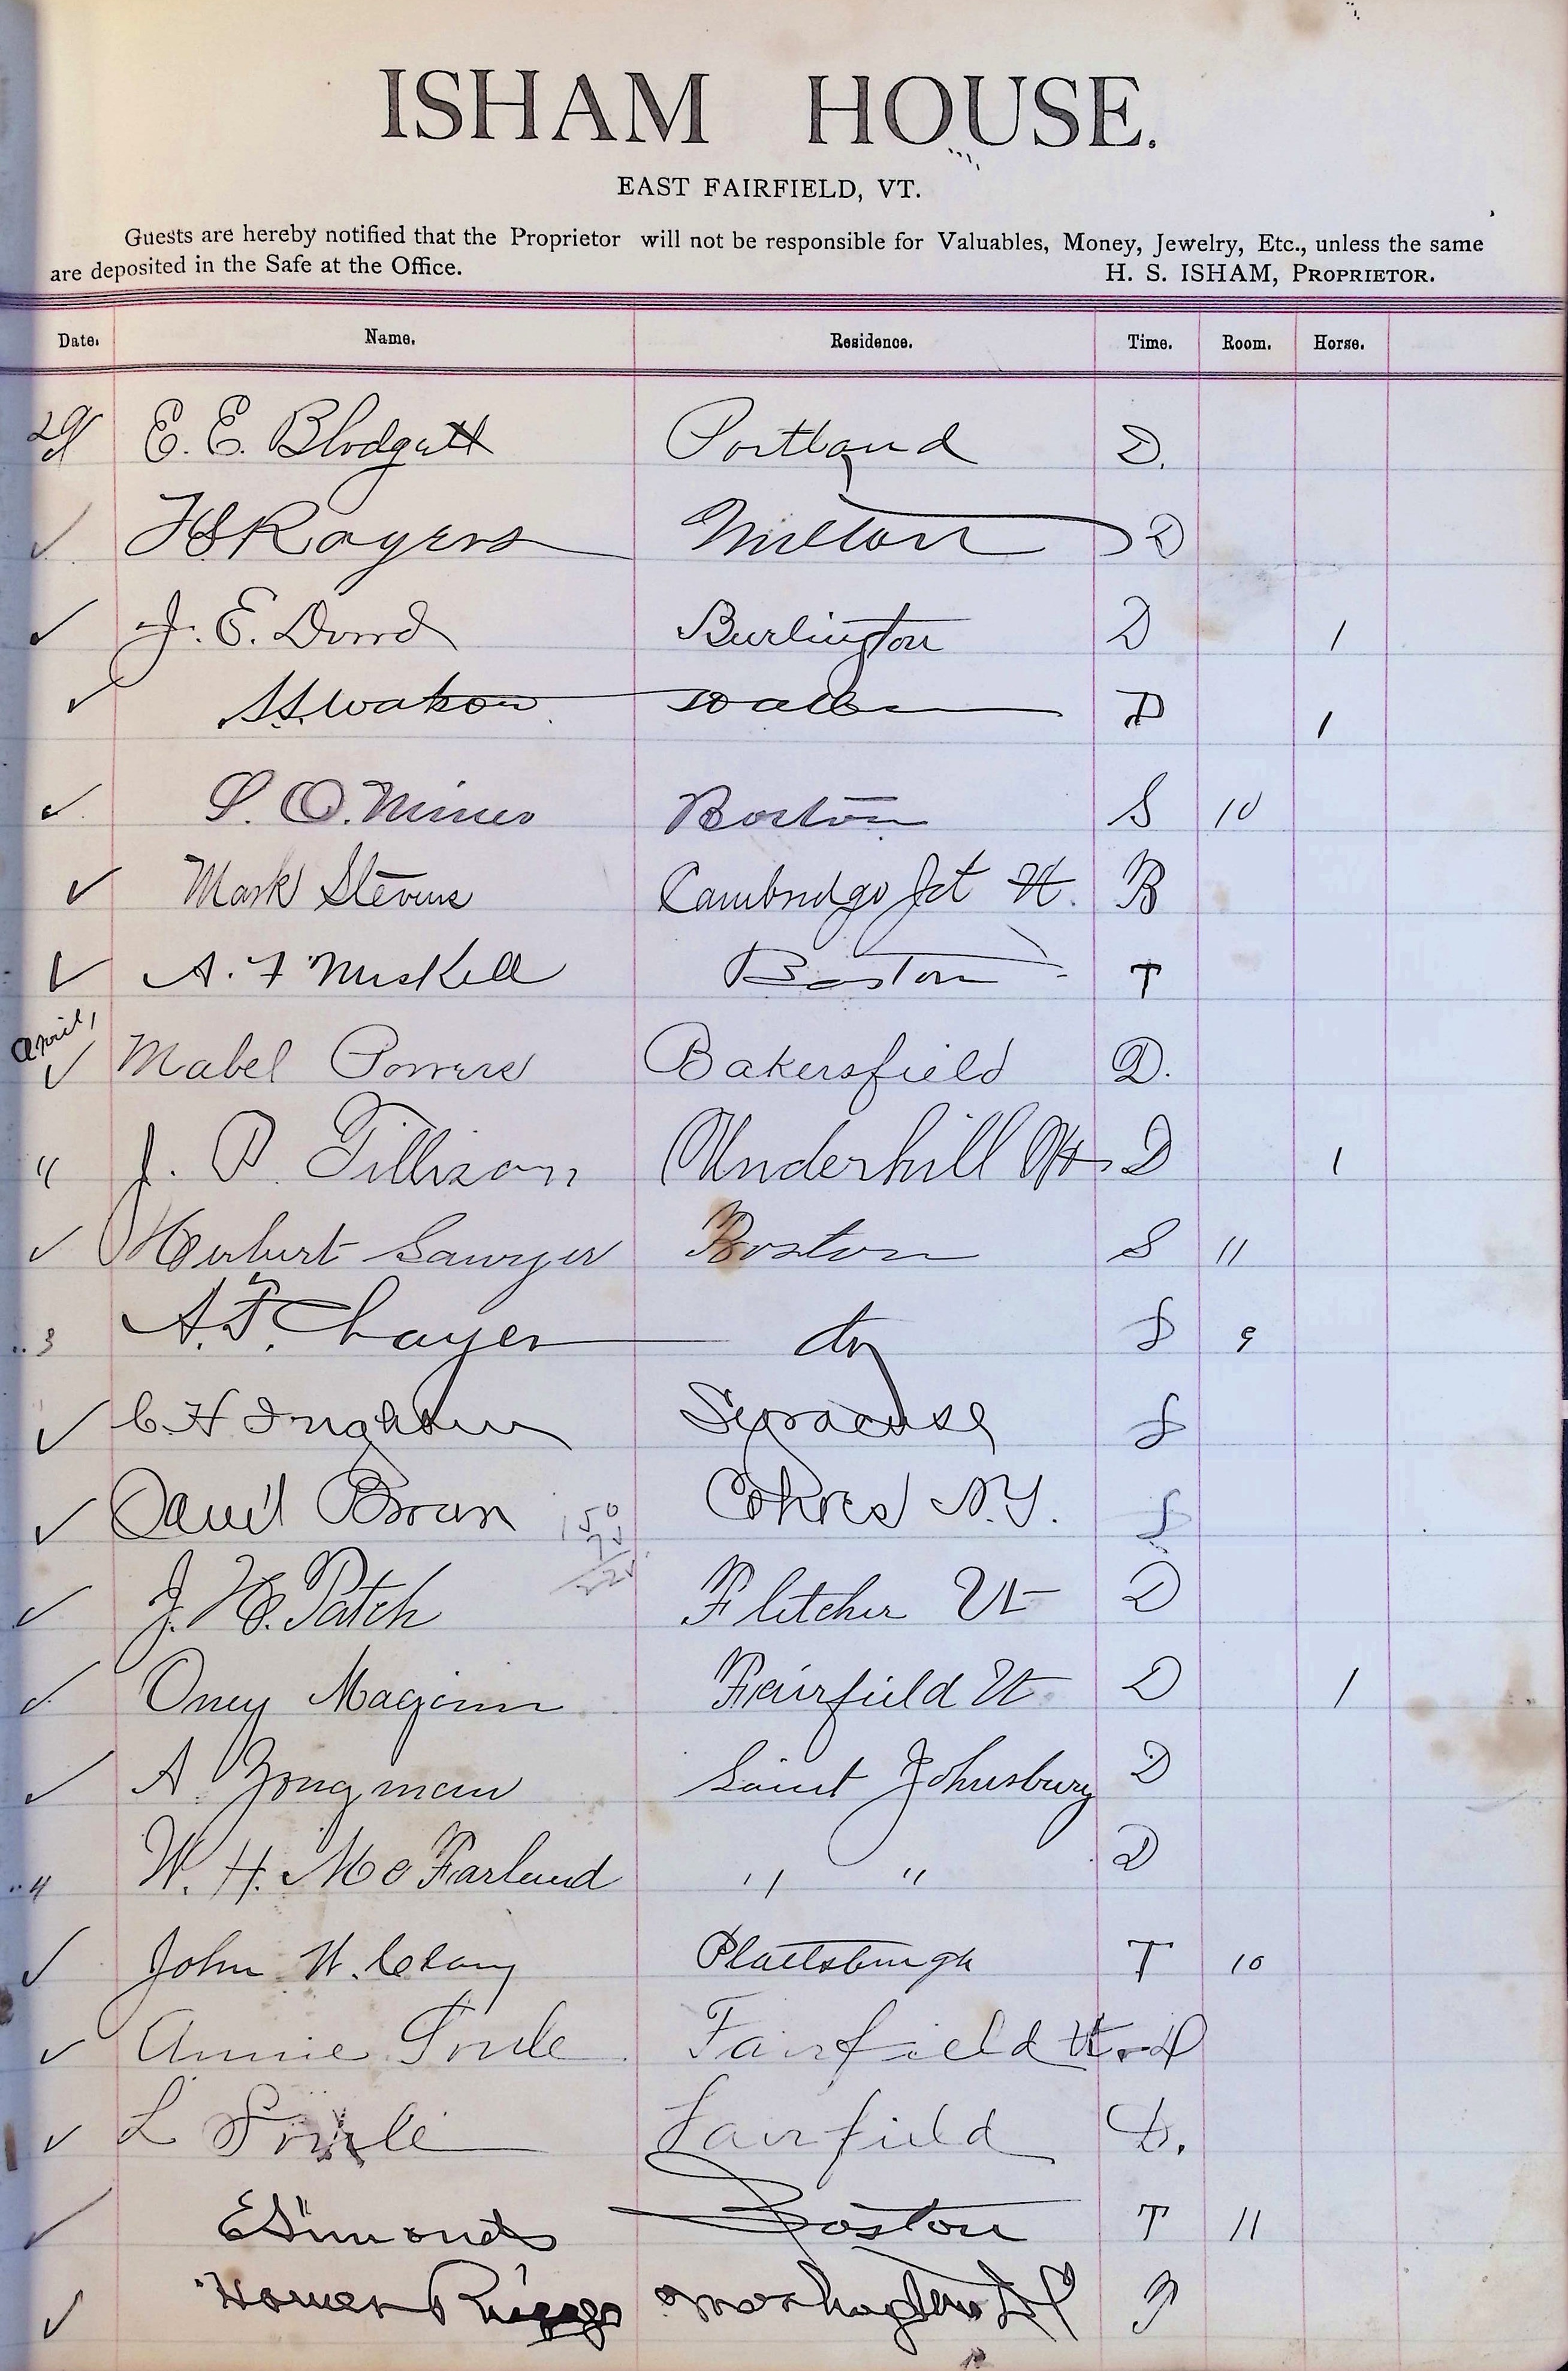 ISHAM HOUSE.
EAST FAIRFIELD, VT.
Guests are hereby notified that the Proprietor will not be responsible for Valuables, Money, Jewelry, Etc., unless the same
are deposited in the Safe at the Office. H. S. ISHAM, PROPRIETOR.
Date. Name. Residence. Time. Room. Horse.
29 E. E. Blodgett Portland D.
✓ H S Rogers Milton D
✓ J. E. Dowd Burlington D 1
✓ D 1
✓ S. O. Miner Boston S 10
✓ Mark Stevens Cambridge Jct Vt. B
✓ A. F Miskell Boston T
April, 1
✓ Mabel Powers Bakersfield D.
" J. P. Tillison Underhill Vt D 1
✓ Herbert Sawyer Boston S 11
.. 3 A. F. Thayer do S 9
✓ C. H Ingham Syracuse S
✓ David Bran Cohoes N.Y. S
150
75
225
✓ J. H. Patch Fletcher Vt D
✓ Oney Maginn Fairfield Vt D 1
✓ A Zongman Saint Johnsbury D
.. 4 W. H. McFarland " " D
✓ John W. Plattsburgh T 10
✓ Annie Soule Fairfield Vt. D
✓ L Soule Fairfield D.
✓ ESimonds Boston T 11
✓ Homer Riggs Washington DC